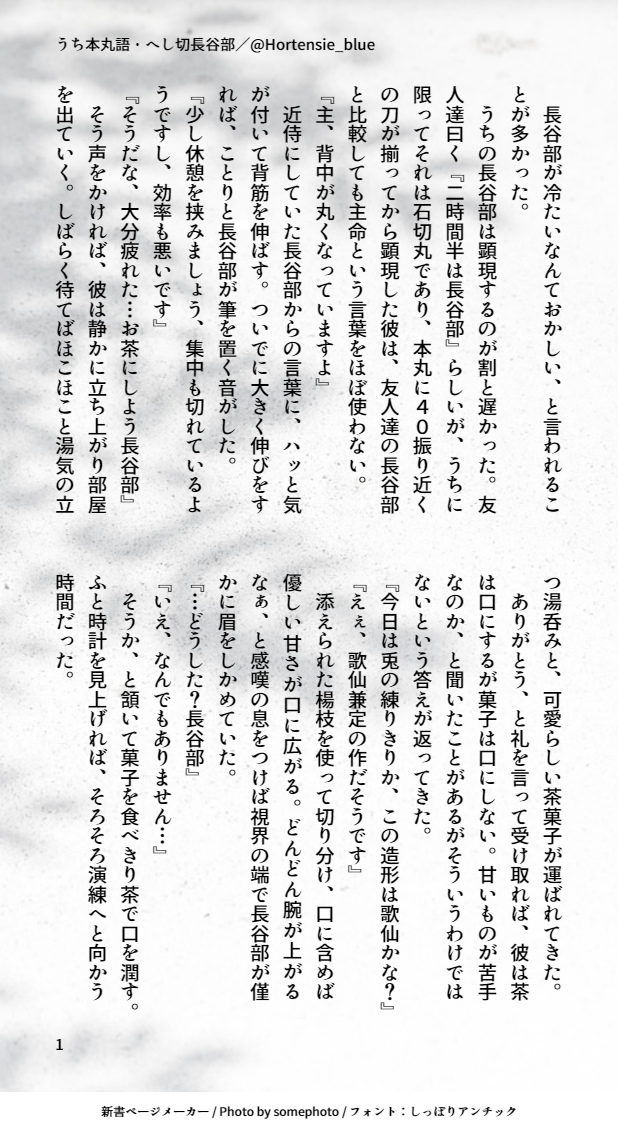 うち本丸語・へし切長谷部／@Hortensie_blue
　長谷部が冷たいなんておかしい、と言われるこ
とが多かった。
　うちの長谷部は顕現するのが割と遅かった。友
人達曰く『二時間半は長谷部』らしいが、うちに
限ってそれは石切丸であり、本丸に４０振り近く
の刀が揃ってから顕現した彼は、友人達の長谷部
と比較しても主命という言葉をほぼ使わない。
『主、背中が丸くなっていますよ』
　近侍にしていた長谷部からの言葉に、ハッと気
が付いて背筋を伸ばす。ついでに大きく伸びをす
れば、ことりと長谷部が筆を置く音がした。
『少し休憩を挟みましょう、集中も切れているよ
うですし、効率も悪いです』
『そうだな、大分疲れた…お茶にしよう長谷部』
　そう声をかければ、彼は静かに立ち上がり部屋
を出ていく。しばらく待てばほこほこと湯気の立
つ湯呑みと、可愛らしい茶菓子が運ばれてきた。
　ありがとう、と礼を言って受け取れば、彼は茶
は口にするが菓子は口にしない。甘いものが苦手
なのか、と聞いたことがあるがそういうわけでは
ないという答えが返ってきた。
『今日は兎の練りきりか、この造形は歌仙かな？』
『えぇ、歌仙兼定の作だそうです』
　添えられた楊枝を使って切り分け、口に含めば
優しい甘さが口に広がる。どんどん腕が上がる
なぁ、と感嘆の息をつけば視界の端で長谷部が僅
かに眉をしかめていた。
『…どうした？長谷部』
『いえ、なんでもありません…』
　そうか、と頷いて菓子を食べきり茶で口を潤す。
ふと時計を見上げれば、そろそろ演練へと向かう
時間だった。
1
新書ページメーカー / Photo by somephoto / フォント：しっぽりアンチック